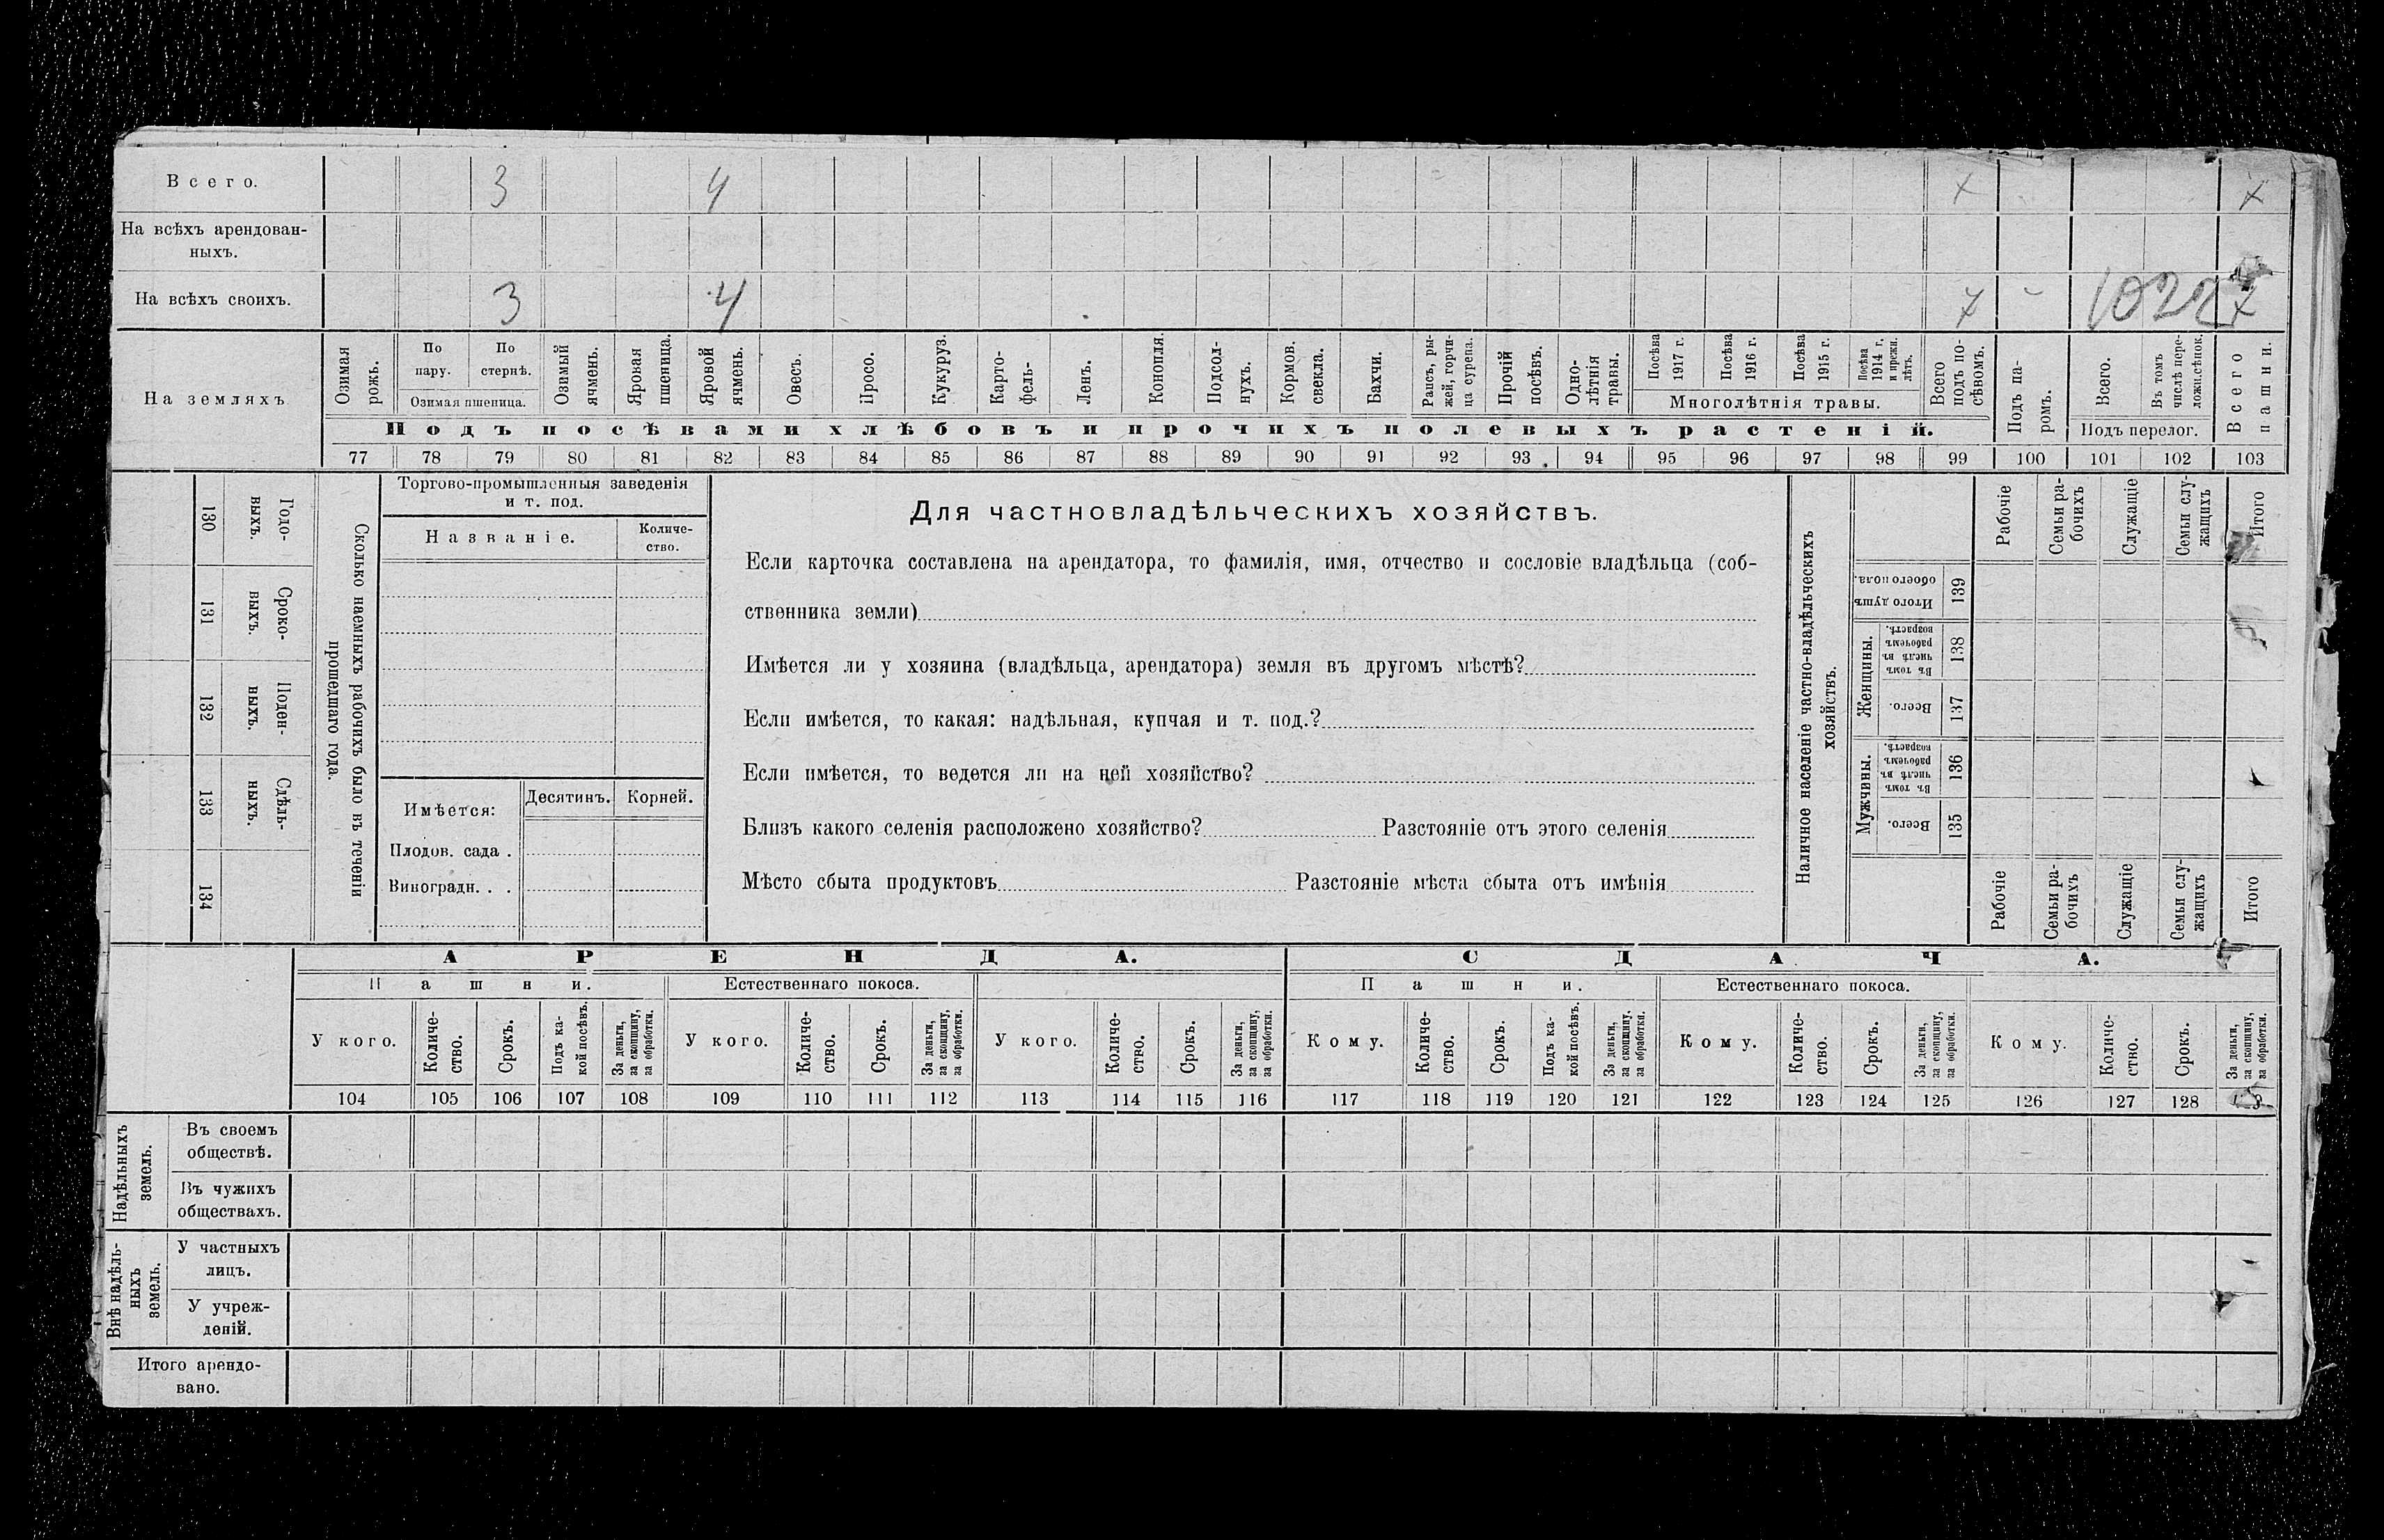 Всего. 3 4 7 7
На всѣхъ арендован-
ныхъ.
На всѣхъ своихъ. 3 4 7 - 1022 7
На земляхъ
Озимая рожь.
По пару.
По стернѣ.
Озимая пшеница.
Озимый ячмень.
Яровая пшеница.
Яровой ячмень.
Овесъ.
Просо.
Кукуруз.
Карто-
фель-
Ленъ.
Конопля.
Подсол-
нухъ.
Кормов.
свекла.
Бахчи.
Рапсъ, ры-
жей, горчи-
ца сурепа.
Прочій
посѣвъ.
Одно-
лѣтнія
травы.
Посѣва
1917 г.
Посѣва
1916 г.
Посѣва
1915 г.
Посѣва
1914 г.
и прежн.
лѣтъ.
Многолѣтнія травы.
Всего
подъ по-
сѣвомъ.
Подъ па-
ромъ.
Всего.
Въ томъ
числѣ пере-
ложн.сѣнок.
Подъ перелог.
Всего
пашни.
Подъ посѣвами хлѣбовъ и прочихъ полевыхъ растеній.
77 78 79 80 81 82 83 84 85 86 87 88 89 90 91 92 93 94 95 96 97 98 99 100 101 102 103
130 Годо-
выхъ.
131 Сроко-
выхъ.
132 Поден-
ныхъ.
133 Сдѣль-
ныхъ.
134
Сколько наемныхъ рабочихъ было въ теченіи
прошедшаго года.
Торгово-промышленныя заведенія
и т. под.
Названіе.
Количе-
ство.
Имѣется:
Десятинъ.
Корней.
Плодов. сада .
Виноградн. . .
Для частновладѣльческихъ хозяйствъ.
Если карточка составлена на арендатора, то фамилія, имя, отчество и сословіе владѣльца (соб-
ственника земли)
Имѣется ли у хозяина (владѣльца, арендатора) земля въ другомъ мѣстѣ?
Если имѣется, то какая: надѣльная, купчая и т. под.?
Если имѣется, то ведется ли на ней хозяйство?
Близъ какого селенія расположено хозяйство? Разстояніе отъ этого селенія
Мѣсто сбыта продуктовъ Разстояніе мѣста сбыта отъ имѣнія
Наличное населеніе частно-владѣльческихъ
хозяйствъ.
Рабочіе
Семьи ра-
бочихъ
Служащіе
Семьи слу-
жащихъ
Итого
Итого душъ
обоего пола.
139
Женщины.
Въ томъ
числѣ въ
рабочемъ
возрастѣ.
138
Всего.
137
Мужчины.
Въ томъ
числѣ въ
рабочемъ
возрастѣ.
136
Всего.
135
Рабочіе
Семьи ра-
бочихъ
Служащіе
Семьи слу-
жащихъ
Итого
АРЕНДА. СДАЧА.
Пашни. Естественнаго покоса. Пашни. Естественнаго покоса.
У кого.
Количе-
ство.
Срокъ.
Подъ ка-
кой посѣвъ.
За деньги,
за скопщину,
за обработки.
У кого.
Количе-
ство.
Срокъ.
За деньги,
за скопщину,
за обработки.
У кого.
Количе-
ство.
Срокъ.
За деньги,
за скопщину,
за обработки.
Кому.
Количе-
ство.
Срокъ.
Подъ ка-
кой посѣвъ.
За деньги,
за скопщину.
за обработки.
Кому.
Количе-
ство.
Срокъ.
За деньги,
за скопщину,
за обработки.
Кому.
Количе-
ство.
Срокъ.
За деньги,
за скопщину,
за обработки.
104 105 106 107 108 109 110 111 112 113 114 115 116 117 118 119 120 121 122 123 124 125 126 127 128
Надѣльныхъ
земель.
Въ своемъ
обществѣ.
Въ чужихъ
обществахъ.
Внѣ надѣль-
ныхъ
земель.
У частныхъ
лицъ.
У учреж-
деній.
Итого арендо-
вано.